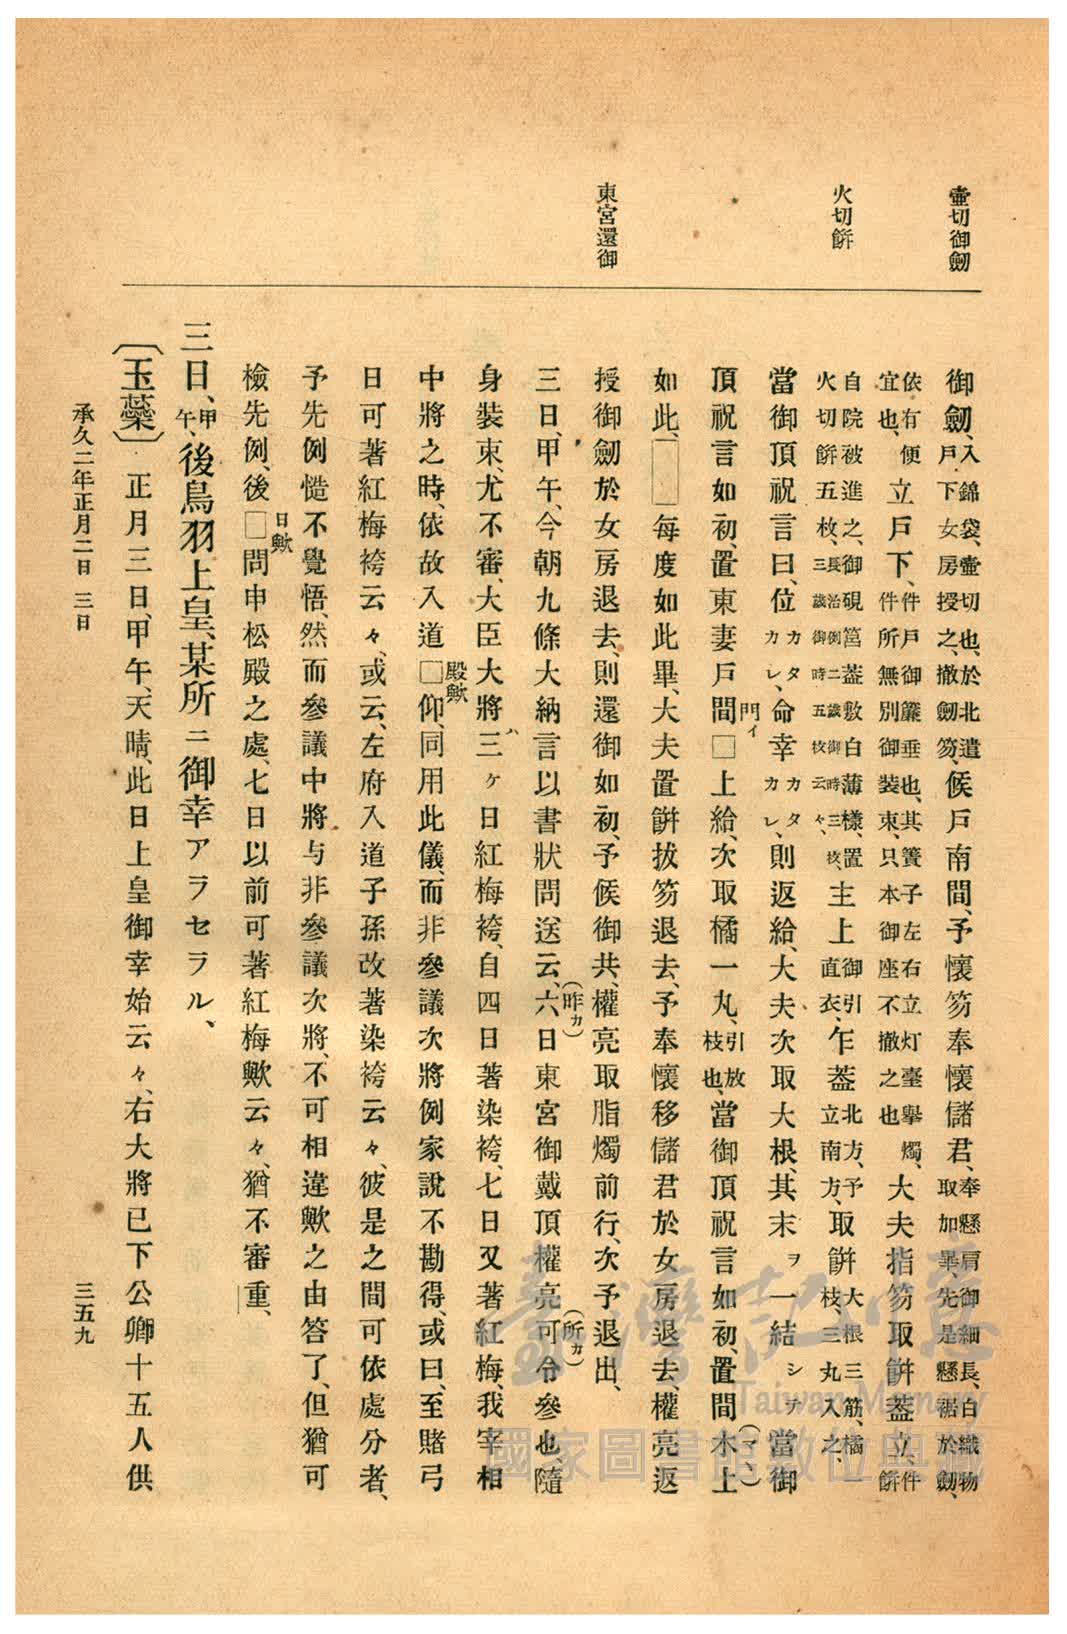 壷切御劔
火切餠
東宮還御
御劔、入錦袋、壷切也、於北遣戶下女房授之、撤劔笏、候戶南間、予懷笏奉懷儲君、奉懸肩御細長、白織物取加畢、先是懸裾於劔、
依有便宜也、立戶下、件戶御簾垂也、其簀子左右立灯臺擧燭、件所無別御裝束、只本御座不撤之也、大夫指笏取餠蓋立、件餠
自院被進之、御硯筥蓋敷白薄樣、置火切餠五枚、長治例二歲御時三枚、三歲御時五枚云々、主上御引直衣、乍蓋北方、予立南方、取餠大根三筋、橘一枝、三丸入之、
當御頂祝言曰、位カタカレ、命幸カタカレ、則返給、大夫次取大根、其末ヲ一結シテ當御
頂祝言如初、置東妻戶間□上給、次取橘一丸、引放枝也、當御頂祝言如初、置間木上
門イ
(マヽ)
如此、□每度如此畢、大夫置餠拔笏退去、予奉懷移儲君於女房、退去、權亮返
授御劔於女房退去、則還御如初、予候御共、權亮取脂燭前行、次予退出、
三日、甲午、今朝九條大納言以書狀問送云、六日東宮御戴頂權亮可令參也、隨
(昨カ)
(所カ)
身裝束、尤不審、大臣大將三ケ日紅梅袴、自四日著染袴、七日又著紅梅、我宰相
ハ
中將之時、依故入道□仰、同用此儀、而非參議次將例家說不勘得、或曰、至賭弓
殿歟
日可著紅梅袴云々、或云、左府入道子孫改著染袴云々、彼是之間可依處分者、
予先例慥不覺悟、然而參議中將与非參議次將、不可相違歟之由答了、但猶可
檢先例、後□問申松殿之處、七日以前可著紅梅歟云々、猶不審重、
日歟
三日、甲午、後鳥羽上皇、某所ニ御幸アラセラル、
〔玉蘂〕正月三日、甲午、天晴、此日上皇御幸始云々、右大將已下公卿十五人供
承久二年正月二日 三日
三五九
臺灣記憶
Taiwan Memory
國家圖書館數位典藏